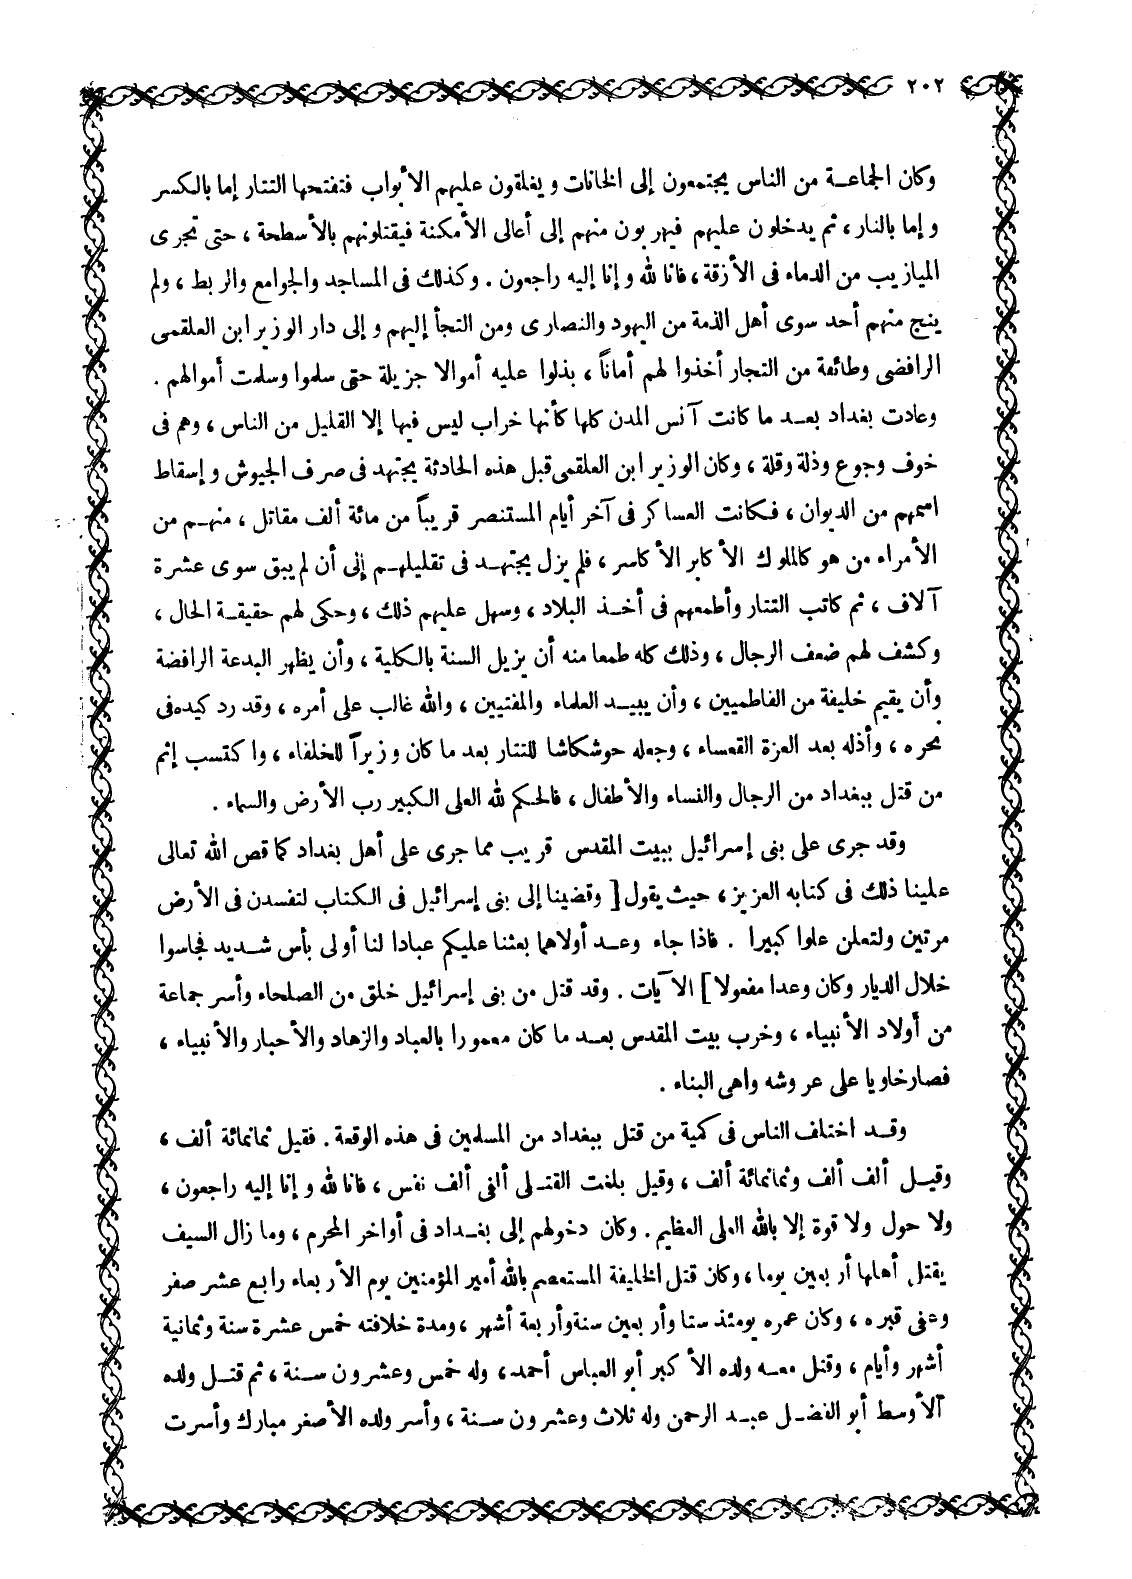 ٢٠٢
وكان الجماعة من الناس يجتمعون إلى الخانات ويغلقون عليهم الأبواب فتفتحها التتار إما بالكسر
وإما بالنار، ثم يدخلون عليهم فيهربون منهم إلى أعالى الأمكنة فيقتلونهم بالأسطحة، حتى تجرى
الميازيب من الدماء فى الأزقة، فانا لله وإنا إليه راجعون. وكذلك فى المساجد والجوامع والربط، ولم
ينج منهم أحد سوى أهل الذمة من اليهود والنصارى ومن التجأ إليهم وإلى دار الوزير ابن العلقمى
الرافضى وطائفة من التجار أخذوا لهم أماناً، بذلوا عليه أموالا جزيلة حتى سلموا وسلمت أموالهم.
وعادت بغداد بعد ما كانت آنس المدن كلها كأنها خراب ليس فيها إلا القليل من الناس، وهم فى
خوف وجوع وذلة وقلة، وكان الوزير ابن العلقمى قبل هذه الحادثة يجتهد فى صرف الجيوش وإسقاط
اسمهم من الديوان، فكانت العساكر فى آخر أيام المستنصر قريباً من مائة ألف مقاتل، منهم من
الأمراء من هو كالملوك الأكابر الأكاسر، فلم يزل يجتهد فى تقليلهم إلى أن لم يبق سوى عشرة
آلاف، ثم كاتب التتار وأطمعهم فى أخذ البلاد، وسهل عليهم ذلك، وحكى لهم حقيقة الحال،
وكشف لهم ضعف الرجال، وذلك كله طمعا منه أن يزيل السنة بالكلية، وأن يظهر البدعة الرافضة
وأن يقيم خليفة من الفاطميين، وأن يبيد العلماء والمفتيين، والله غالب على أمره، وقد رد كيده فى
نحره، وأذله بعد العزة القعساء، وجعله حوشكاشا للتتار بعد ما كان وزيراً للخلفاء، واكتسب إثم
من قتل ببغداد من الرجال والنساء والأطفال، فالحكم لله العلى الكبير رب الأرض والسماء.
وقد جرى على بنى إسرائيل ببيت المقدس قريب مما جرى على أهل بغداد كما قص الله تعالى
علينا ذلك فى كتابه العزيز، حيث يقول [وقضينا إلى بنى إسرائيل فى الكتاب لتفسدن فى الأرض
مرتين ولتعلن علوا كبيرا. فاذا جاء وعد أولاهما بعثنا عليكم عبادا لنا أولى بأس شديد فجاسوا
خلال الديار وكان وعدا مفعولا] الآيات. وقد قتل من بنى إسرائيل خلق من الصلحاء وأسر جماعة
من أولاد الأنبياء، وخرب بيت المقدس بعد ما كان معمورا بالعباد والزهاد والأحبار والأنبياء،
فصار خاويا على عروشه واهى البناء.
وقد اختلف الناس فى كمية من قتل ببغداد من المسلمين فى هذه الوقعة. فقيل ثمانمائة ألف،
وقيل ألف ألف وثمانمائة ألف، وقيل بلغت القتلى ألفى ألف نفس، فانا لله وإنا إليه راجعون،
ولا حول ولا قوة إلا بالله العلى العظيم. وكان دخولهم إلى بغداد فى أواخر المحرم، وما زال السيف
يقتل أهلها أربعين يوما، وكان قتل الخليفة المستعصم بالله أمير المؤمنين يوم الأربعاء رابع عشر صفر
وعفى قبره، وكان عمره يومئذ ستا وأربعين سنة وأربعة أشهر، ومدة خلافته خمس عشرة سنة وثمانية
أشهر وأيام، وقتل معه ولده الأكبر أبو العباس أحمد، وله خمس وعشرون سنة، ثم قتل ولده
الأوسط أبو الفضل عبد الرحمن وله ثلاث وعشرون سنة، وأسر ولده الأصغر مبارك وأسرت